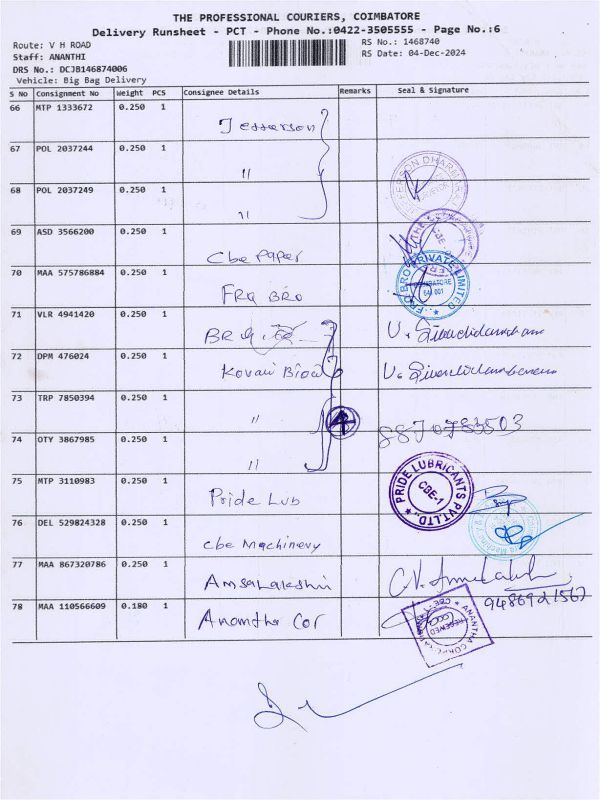 THE PROFESSIONAL COURIERS, COIMBATORE
Delivery Runsheet - PCT - Phone No.:0422-3505555 - Page No.:6
Route: V H ROAD RS No.: 1468740
Staff: ANANTHI RS Date: 04-Dec-2024
DRS No.: DCJB146874006
Vehicle: Big Bag Delivery
S No Consignment No Weight PCS Consignee Details Remarks Seal & Signature
66 MTP 1333672 0.250 1 Jefferson
67 POL 2037244 0.250 1 "
68 POL 2037249 0.250 1 "
69 ASD 3566200 0.250 1 Cbe Paper
70 MAA 575786884 0.250 1 FRG BRO PRIVATE LIMITED
71 VLR 4941420 0.250 1
72 DPM 476024 0.250 1 Kovai
73 TRP 7850394 0.250 1 "
74 OTY 3867985 0.250 1 "
75 MTP 3110983 0.250 1 Pride Lub PRIDE LUBRICANTS PVT.LTD. CBE-1
76 DEL 529824328 0.250 1 Cbe Machinery
77 MAA 867320786 0.250 1
78 MAA 110566609 0.180 1 Anantha Cor